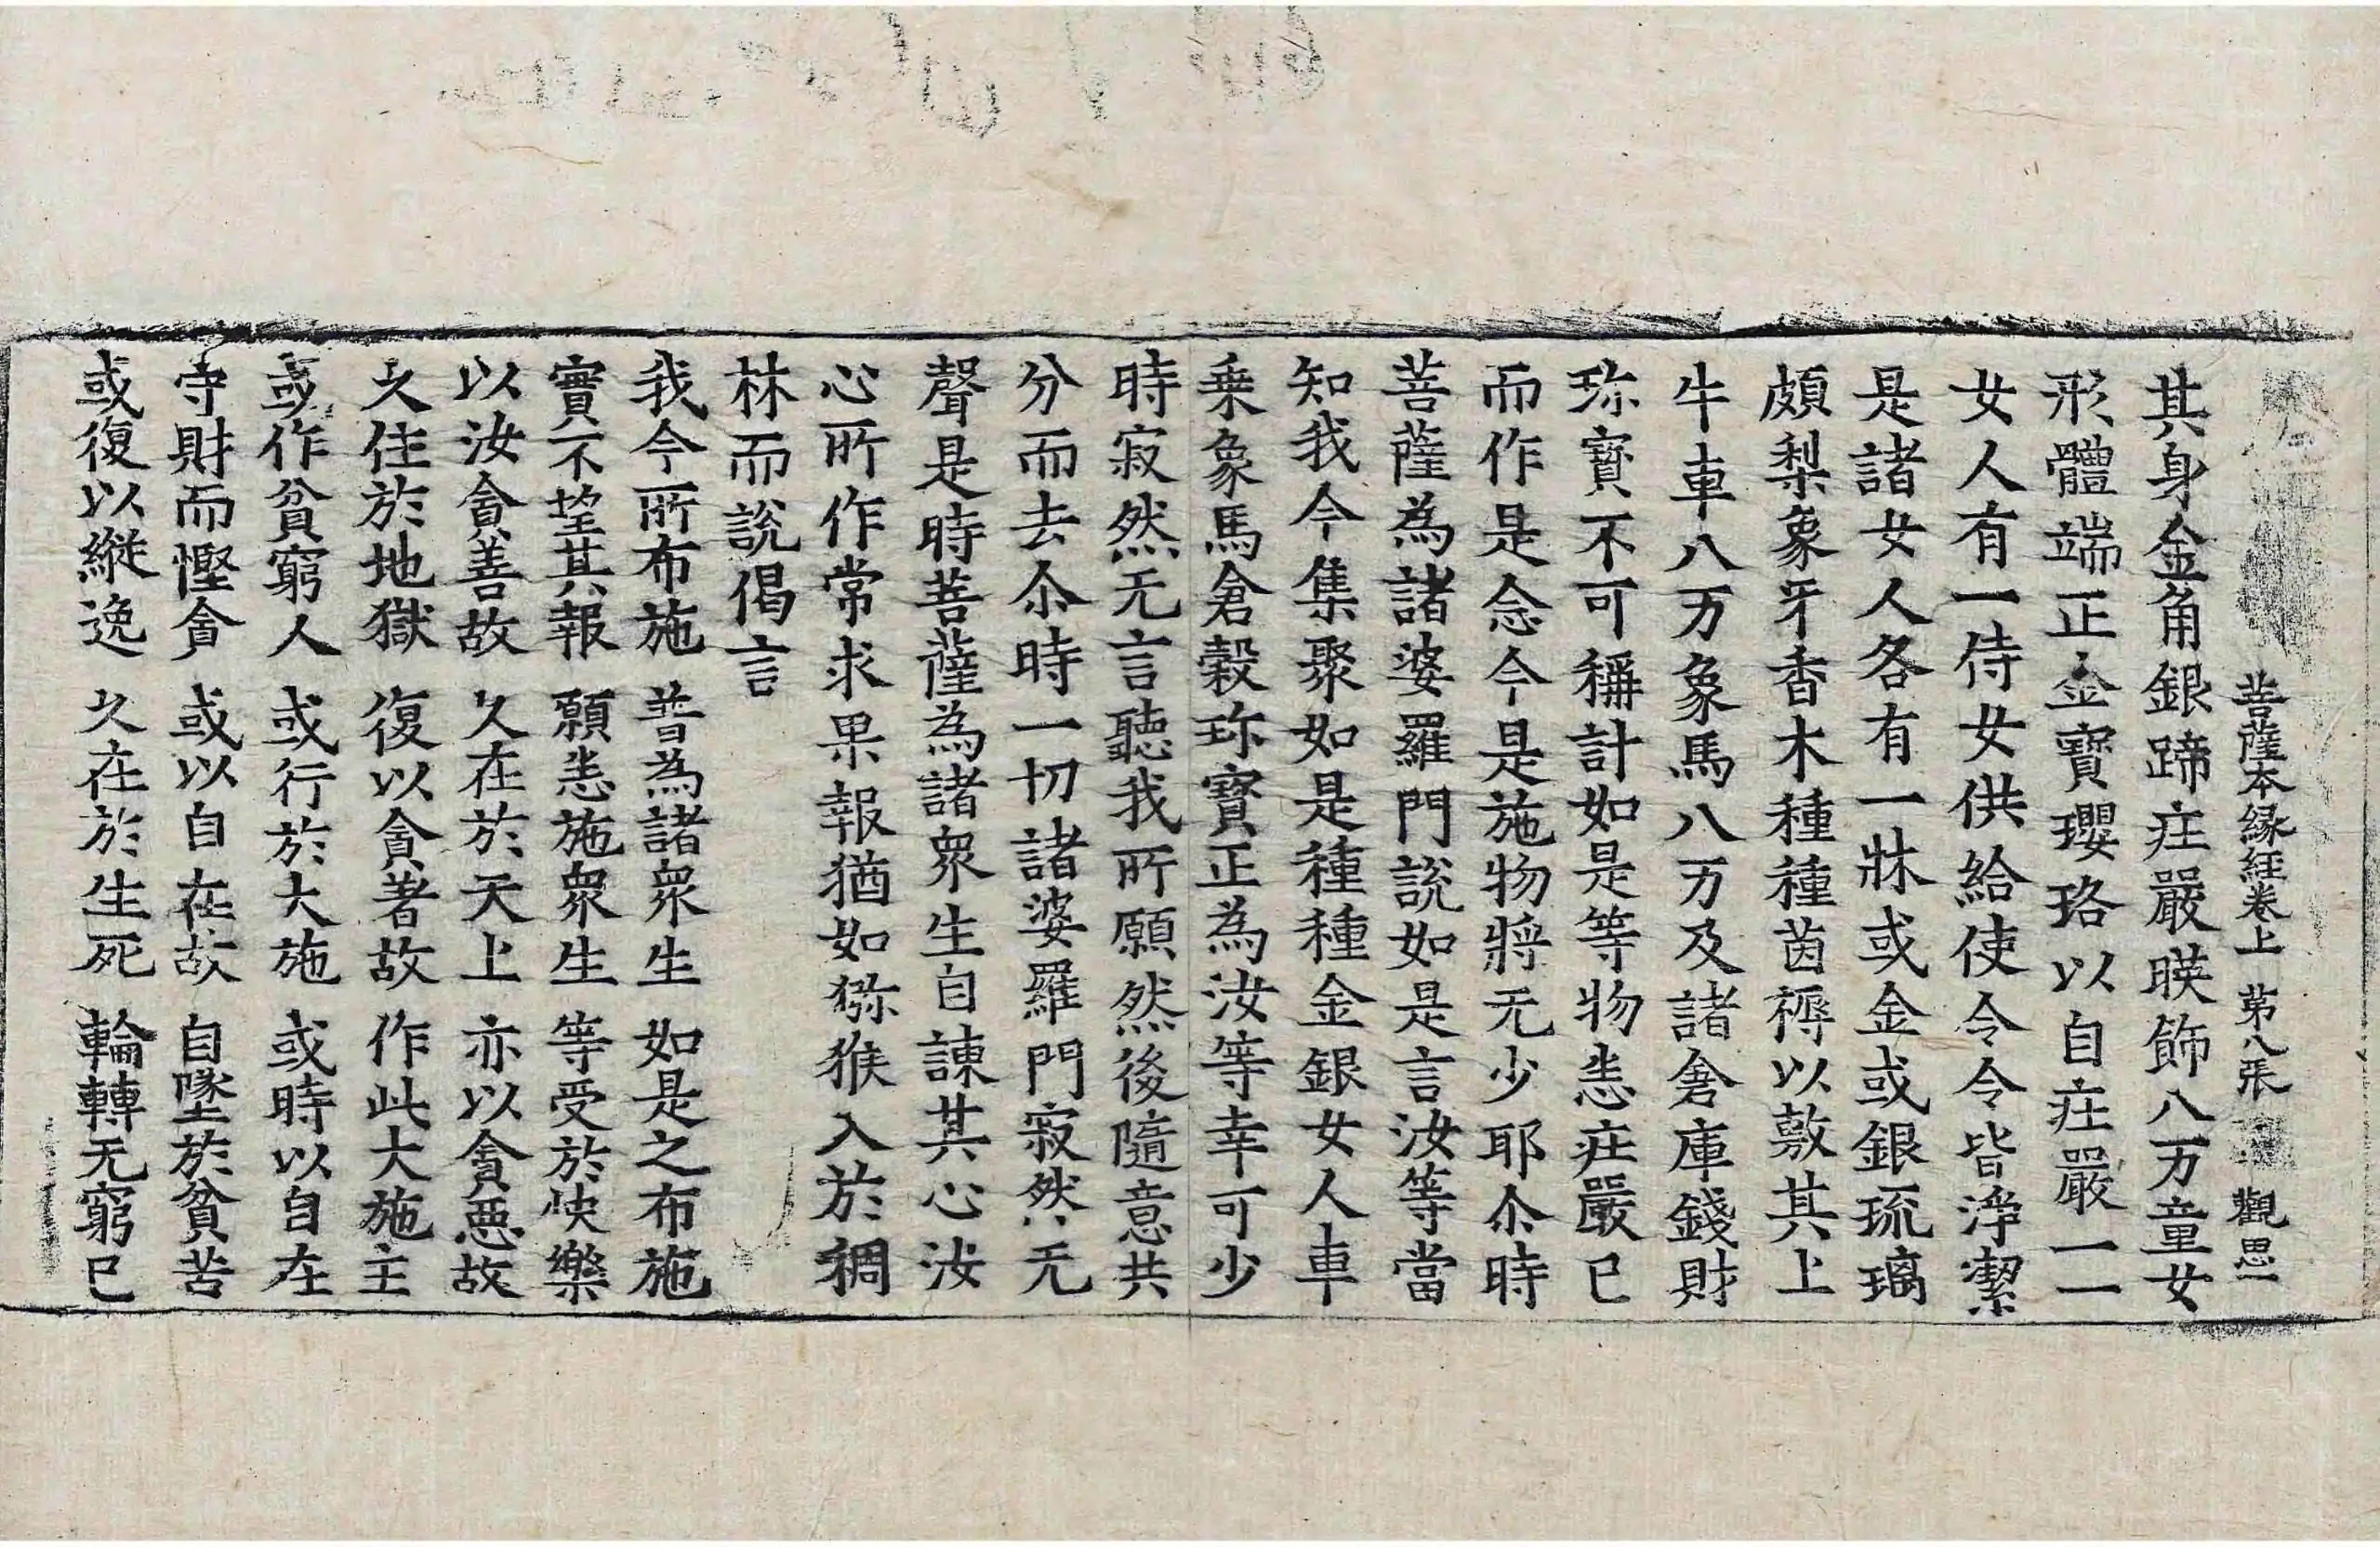 菩薩本縁経卷上 苐八張 觀思一
其身金角銀蹄庄嚴暎飾八万童女
形體端正金寶瓔珞以自庄嚴一一
女人有一侍女供給使令令皆淨潔
是諸女人各有一牀或金或銀琉璃
頗梨象牙香木種種茵褥以敷其上
牛車八万象馬八万及諸倉庫錢財
珎寶不可稱計如是等物悉庄嚴已
而作是念今是施物將无少耶尒時
菩薩為諸婆羅門說如是言汝等當
知我今集聚如是種種金銀女人車
乗象馬倉穀珎寶正為汝等幸可少
時寂然无言聽我所願然後隨意共
分而去尒時一切諸婆羅門寂然无
聲是時菩薩為諸衆生自諫其心汝
心所作常求果報猶如猕猴入於稠
林而說偈言
我今所布施 普為諸衆生 如是之布施
實不望其報 願悉施衆生 等受於快樂
以汝貪善故 久在於天上 亦以貪惡故
久住於地獄 復以貪著故 作此大施主
或作貧窮人 或行於大施 或時以自在
守財而慳貪 或以自在故 自墜於貧苦
或復以縱逸 久在於生死 輪轉无窮已